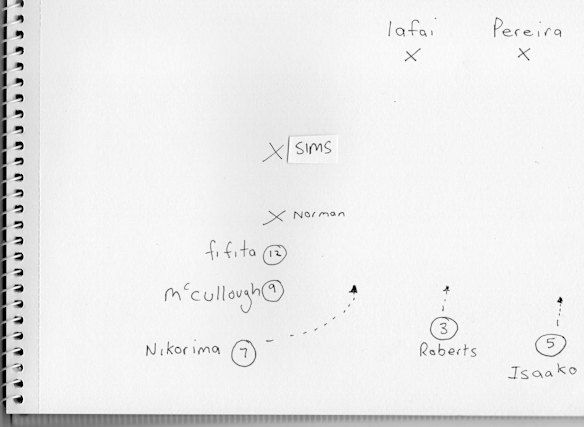 Iafai Pereira
X X
X SIMS
X Norman
fifita 12
McCullough 9
Nikorima 7
3
Roberts
5
Isaako